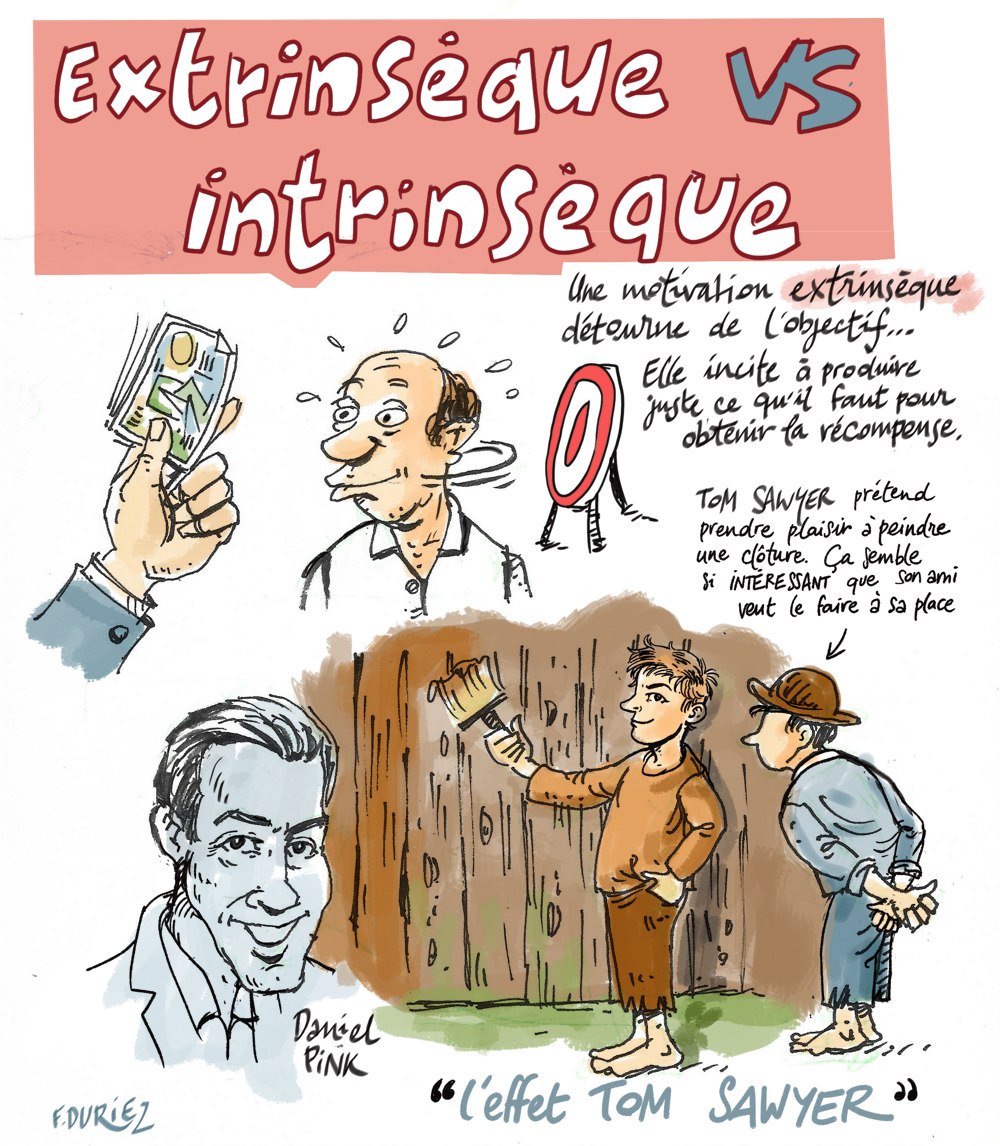 Extrinsèque VS
intrinsèque
Une motivation extrinsèque
détourne de l'objectif...
Elle incite à produire
juste ce qu'il faut pour
obtenir la récompense.
TOM SAWYER prétend
prendre plaisir à peindre
une clôture. Ça semble
si INTÉRESSANT que son ami
veut le faire à sa place
Daniel
PiNK
"l'effet TOM SAWYER"
F.DURiEZ